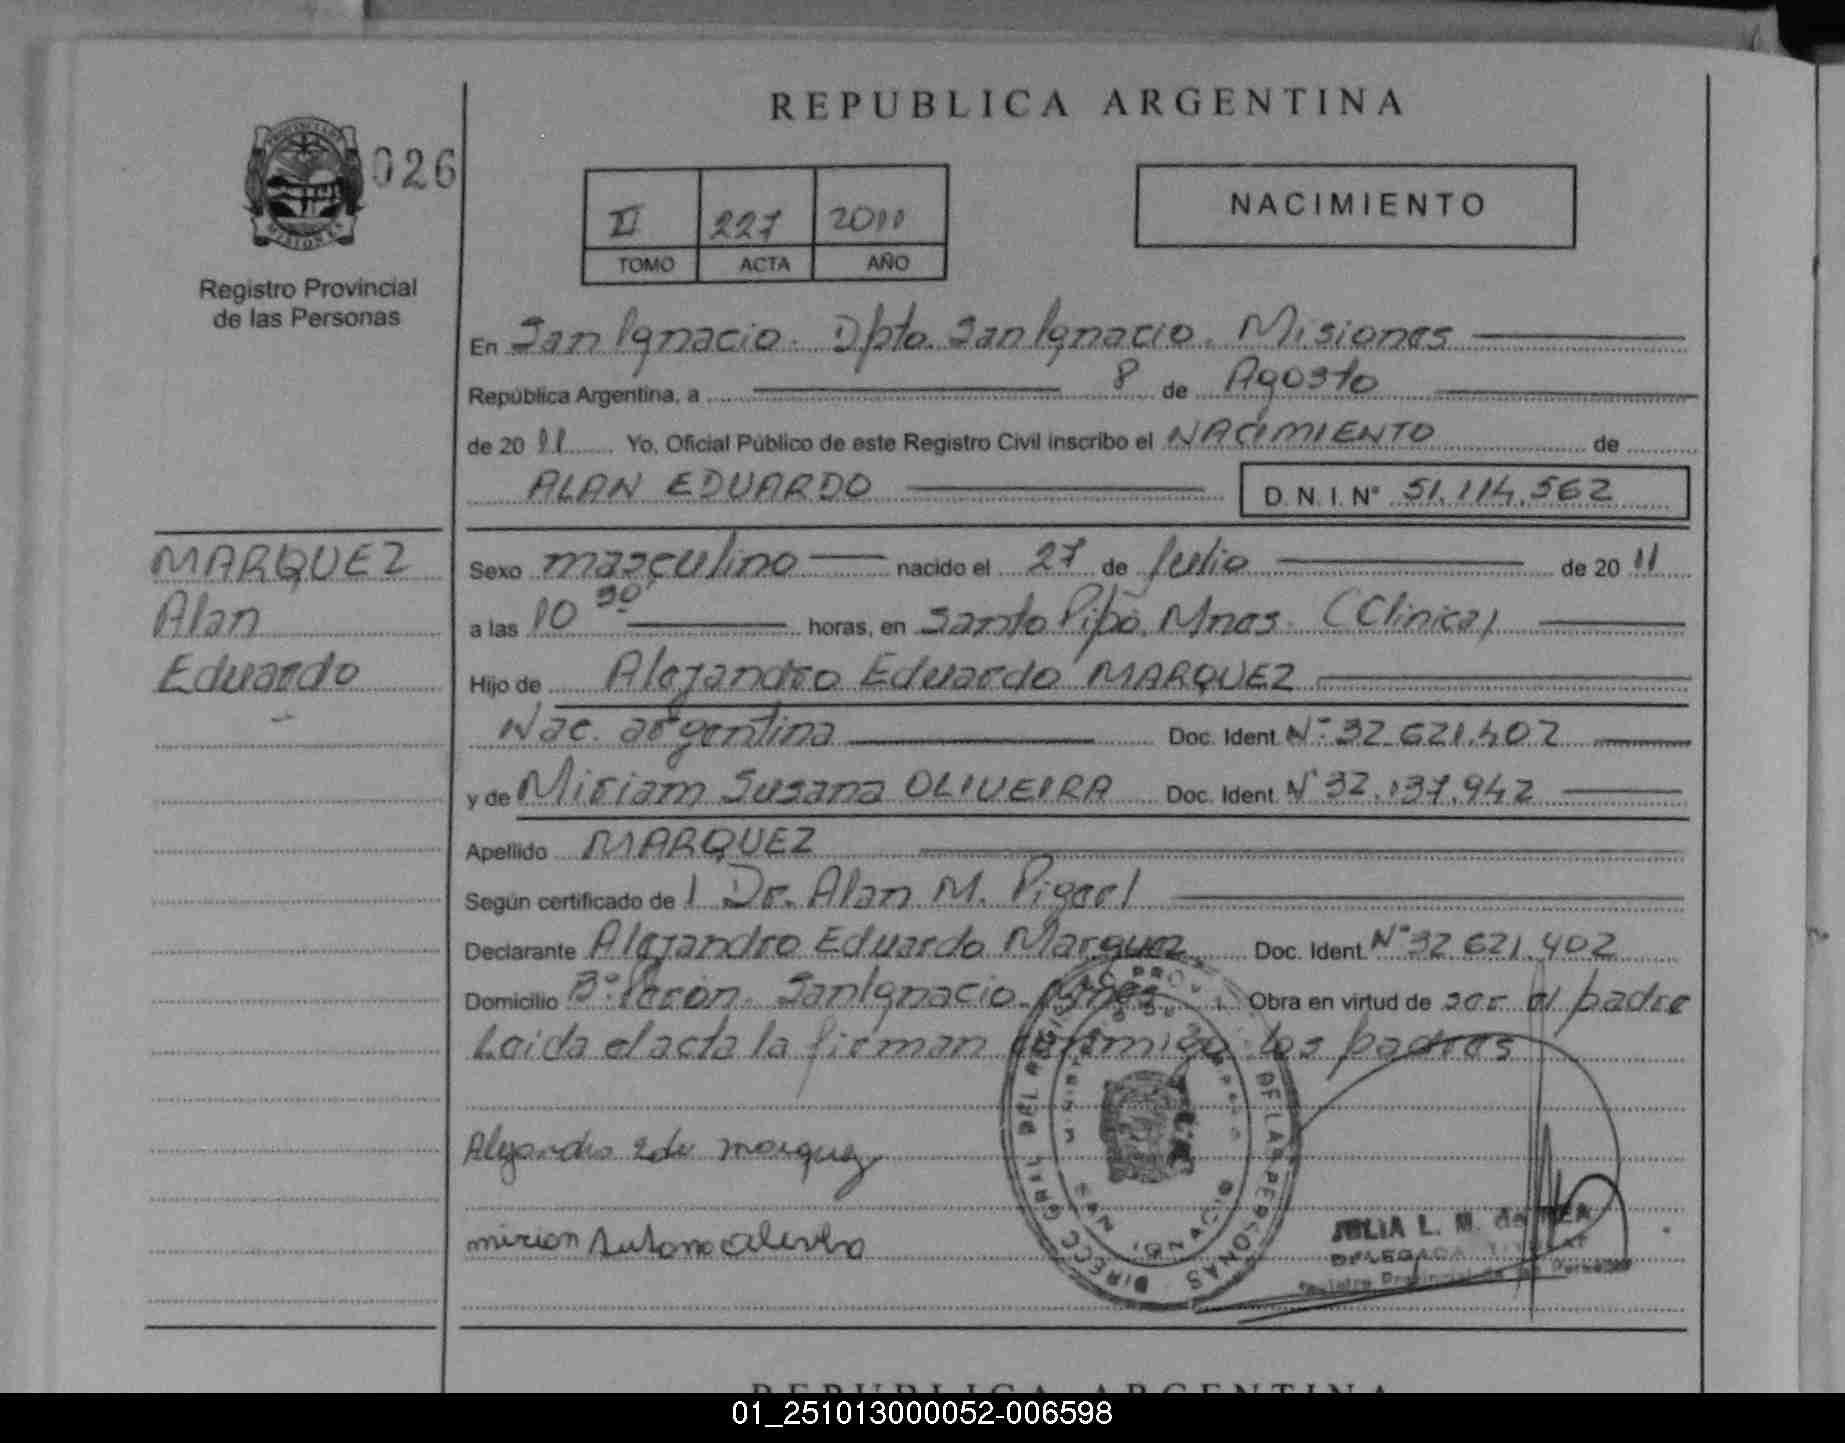 REPUBLICA ARGENTINA
026
PROVINCIA DE MISIONES
Registro Provincial
de las Personas
II 227 2011
TOMO ACTA AÑO
NACIMIENTO
En San Ignacio. Dpto. San Ignacio. Misiones
República Argentina, a 8 de Agosto
de 20 11 Yo, Oficial Público de este Registro Civil inscribo el NACIMIENTO de
ALAN EDUARDO D.N.I. N° 51.114.562
MARQUEZ
Alan
Eduardo
Sexo masculino nacido el 27 de Julio de 20 11
a las 10 30 horas, en Santo Pipó. Mnes. (Clinica)
Hijo de Alejandro Eduardo MARQUEZ
Nac. argentina Doc. Ident. N° 32.621.402
y de Miriam Susana OLIVEIRA Doc. Ident. N° 32.137.942
Apellido MARQUEZ
Según certificado de l Dr. Alan M.
Declarante Alejandro Eduardo Marquez Doc. Ident. N° 32.621.402
Domicilio B° Perón. San Ignacio. Mnes. Obra en virtud de ser el padre
Leida el acta la firman conmigo los padres
Alejandro Edu marquez
DIRECC. GRAL. DEL REGISTRO PROV. DE LAS PERSONAS
SAN IGNACIO
JULIA L. M. de
DELEGADA TITULAR
Registro Provincial de las Personas
REPUBLICA ARGENTINA
01_251013000052-006598